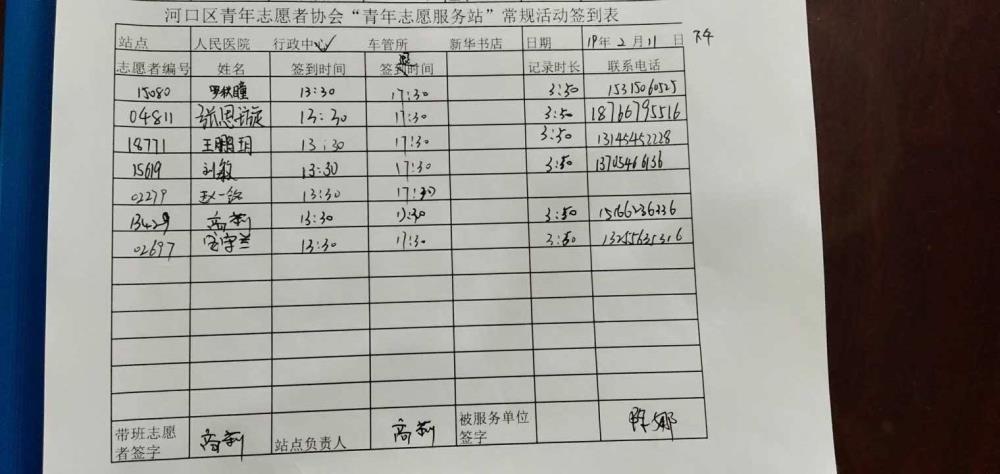 河口区青年志愿者协会“青年志愿服务站”常规活动签到表
站点 人民医院 行政中心✓ 车管所 新华书店 日期 19年2月11日 下午
志愿者编号 姓名 签到时间 签退时间 记录时长 联系电话
15080 13:30 17:30 3:50 15315060525
04811 张恩旋 13:30 17:30 3:50 18766795516
18771 王鹏玥 13:30 17:30 3:50 13145452228
15619 刘敏 13:30 17:30 3:50 13705466136
02279 赵一铭 13:30 17:30
13429 高莉 13:30 17:30 3:50 15166236236
02697 13:30 17:30 3:50 13255635316
带班志愿者签字 高莉 站点负责人 高莉 被服务单位签字 陈娜